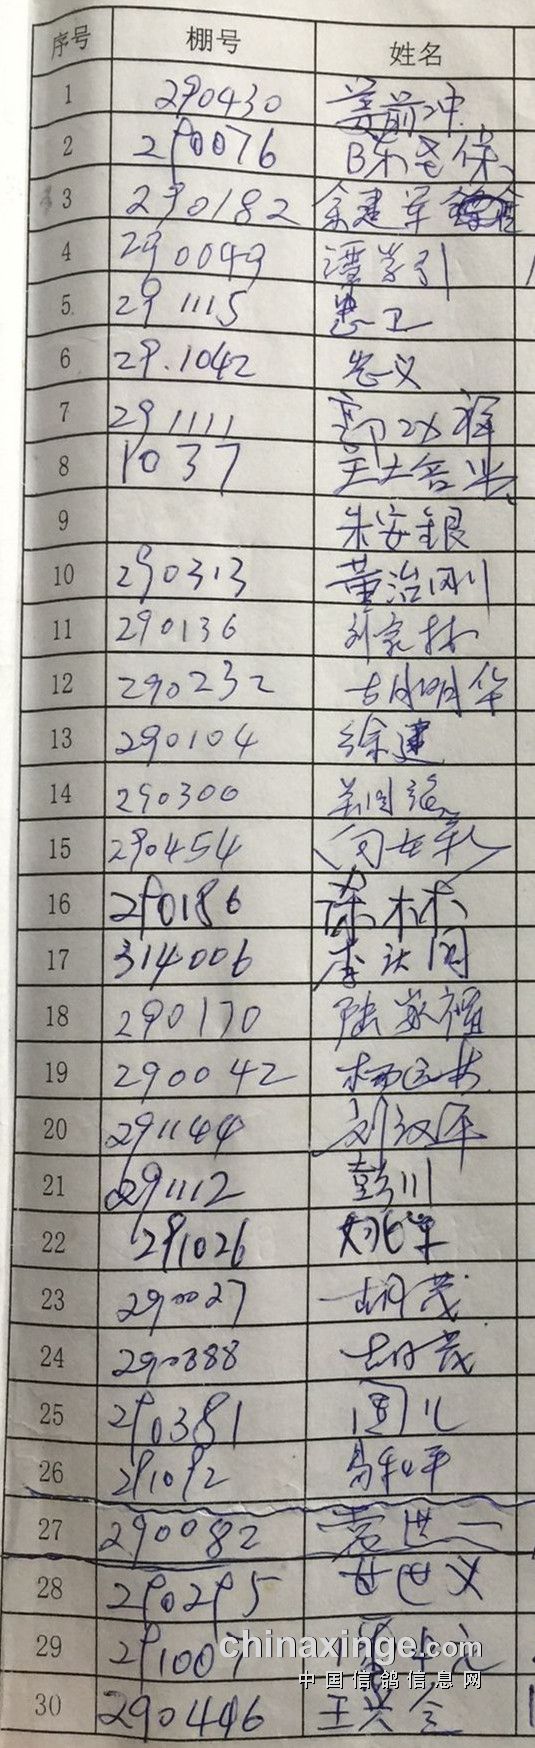 序号 棚号 姓名
1 290430
2 290076 陈
3 290182 余建军
4 290049 谭学引
5 291115 忠卫
6 29.1042 忠义
7 291111
8 1037
9 朱安银
10 290313 董治刚
11 290136 刘家林
12 290232 胡明华
13 290104 徐建
14 290300
15 290454
16 290186 林
17 314006 李
18 290170 陆
19 290042 杨
20 291144 刘汉军
21 291112 彭川
22 291026 姚军
23 290027 胡茂
24 290388 胡茂
25 290381
26 291092 易和平
27 290082 袁世一
28 290295 甘世义
29 291007
30 290446 王兴全
chinaxinge.com
中国信鸽信息网